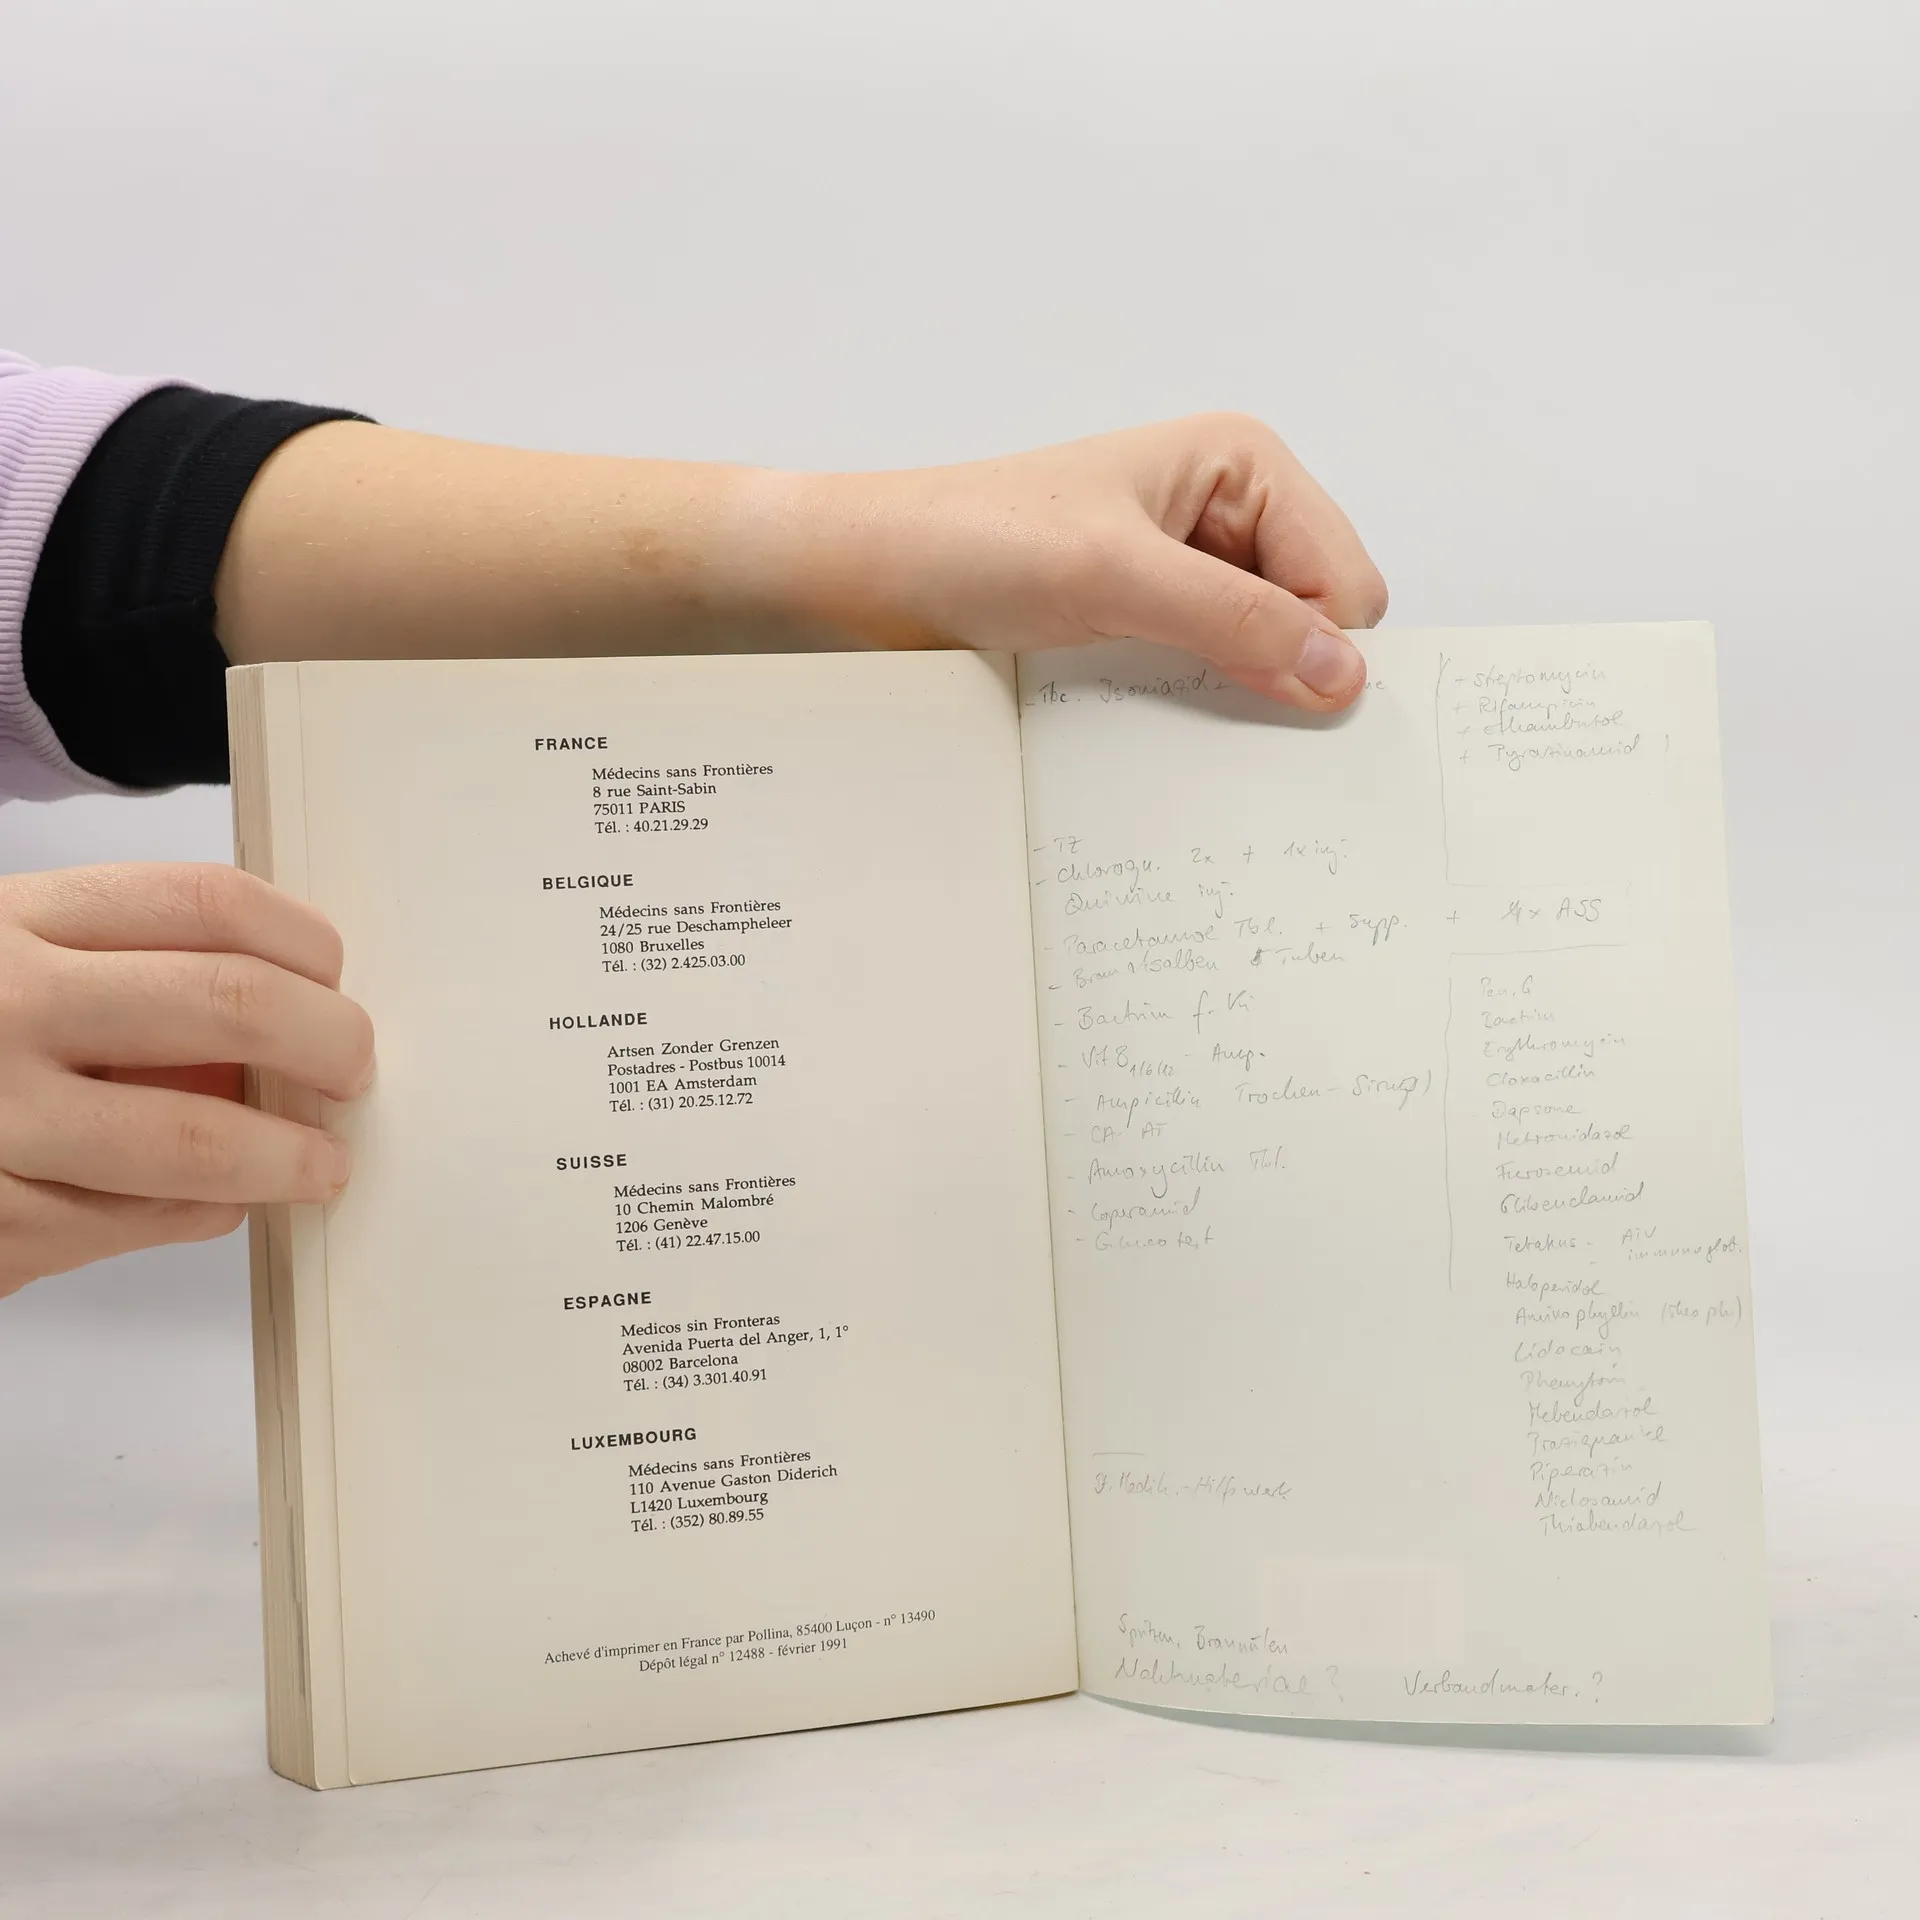 FRANCE
Médecins sans Frontières
8 rue Saint-Sabin
75011 PARIS
Tél. : 40.21.29.29
BELGIQUE
Médecins sans Frontières
24/25 rue Deschampheleer
1080 Bruxelles
Tél. : (32) 2.425.03.00
HOLLANDE
Artsen Zonder Grenzen
Postadres - Postbus 10014
1001 EA Amsterdam
Tél. : (31) 20.25.12.72
SUISSE
Médecins sans Frontières
10 Chemin Malombré
1206 Genève
Tél. : (41) 22.47.15.00
ESPAGNE
Medicos sin Fronteras
Avenida Puerta del Anger, 1, 1°
08002 Barcelona
Tél. : (34) 3.301.40.91
LUXEMBOURG
Médecins sans Frontières
110 Avenue Gaston Diderich
L1420 Luxembourg
Tél. : (352) 80.89.55
Achevé d'imprimer en France par Pollina, 85400 Luçon - n° 13490
Dépôt légal n° 12488 - février 1991
- Tbc. Isoniazid -
+ Streptomycin
+ Rifampicin
+ Ethambutol
+ Pyrazinamid
- TZ
- Chloroqu. 2x + 1x inj.
Quinine inj.
- Paracetamol Tbl. + Supp. + 4x ASS
- Brandsalben 5 Tuben
- Bactrim f. Ki
- Vit B 1/6/12 - Amp.
- Ampicillin Trocken-Sirup)
- CA- AT
- Amoxycillin Tbl.
- Loperamid
- Glucotest
Pen. G
Bactrim
Erythromycin
Cloxacillin
Dapsone
Metronidazol
Furosemid
Glibenclamid
Tetanus - 
immunoglob.
Haloperidol
Aminophyllin (theoph)
Lidocain
Phenytoin
Mebendazol
Praziquantel
Piperazin
Niclosamid
Thiabendazol
Medik.-Hilfswerk
Spritzen, Braunülen
Nahtmaterial? Verbandmater.?